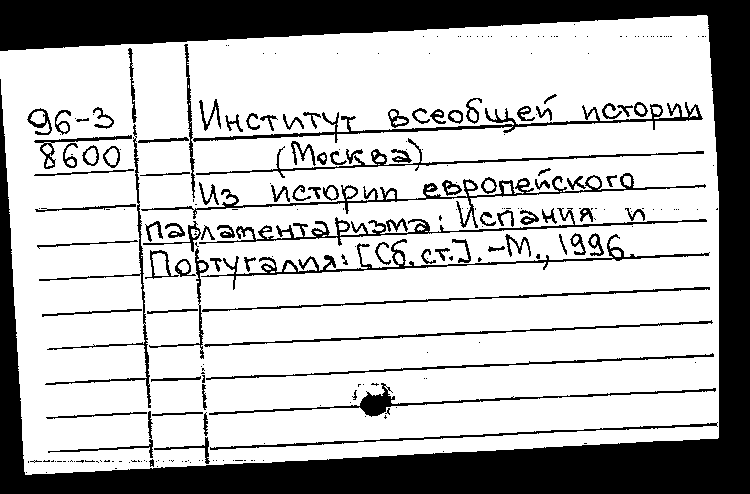 96-3 Институт всеобщей истории
8600 (Москва)
Из истории европейского
парламентаризма: Испания и
Португалия: [Сб. ст.]. -М., 1996.